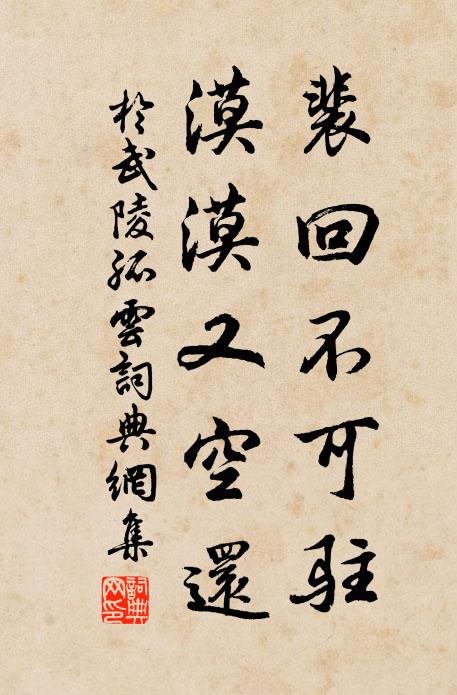 裴回不可駐
漠漠又空還
於武陵孤雲詞典網集
詞典
网印